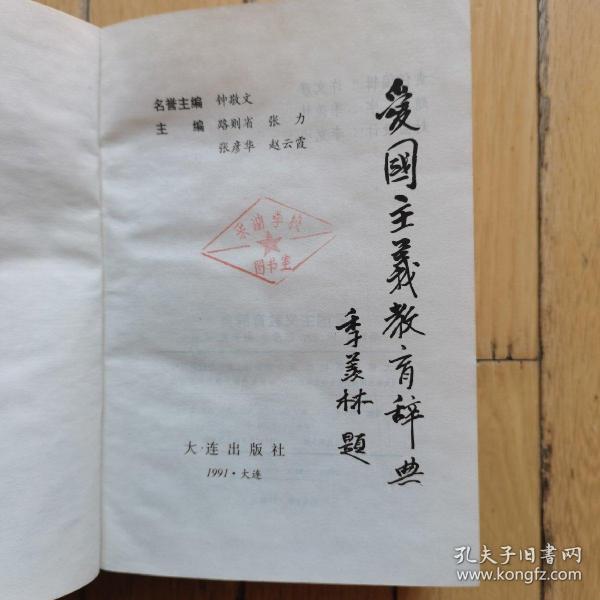 名誉主编 钟敬文
主编 路则省 张力
张彦华 赵云霞
爱國主義教育辞典
季羡林 題
图书室
大连出版社
1991·大连
孔夫子旧书网
www.kongfz.com